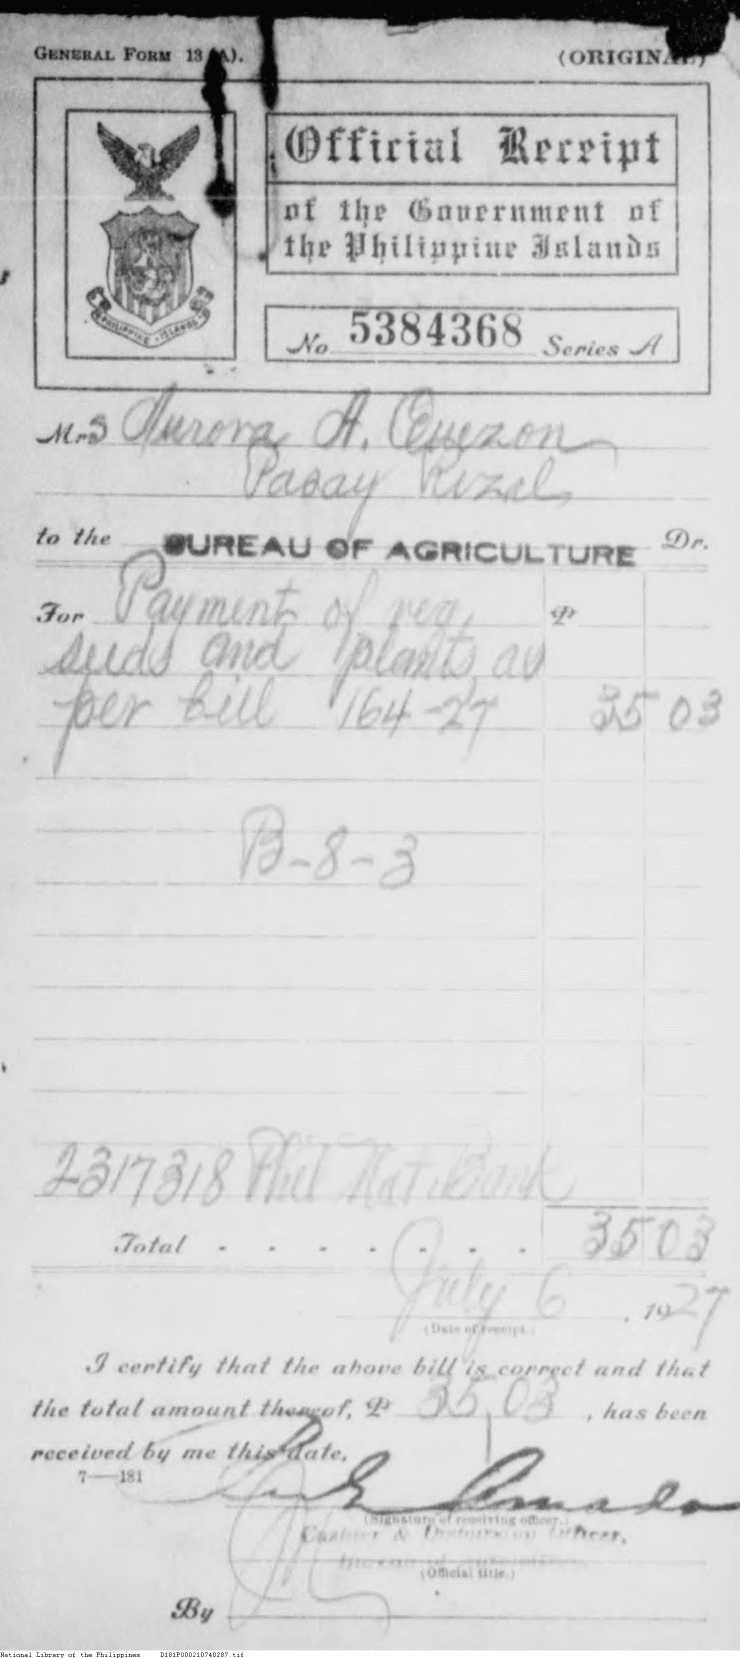 GENERAL FORM 13 (A).
(ORIGINAL)
PHILIPPINE ISLANDS
Official Receipt
of the Government of
the Philippine Islands
No 5384368 Series A
Mrs Aurora A. Quezon
Pasay Rizal
to the BUREAU OF AGRICULTURE Dr.
For Payment of veg. ₱
seeds and plants as
per bill 164-27 35 03
B-8-3
2317318 Phil Nat. Bank
Total . . . . . . . 35 03
July 6, 1927
(Date of receipt.)
I certify that the above bill is correct and that
the total amount thereof, ₱ 35.03, has been
received by me this date.
7—181
Amado
(Signature of receiving officer.)
Cashier & Disbursing Officer,
Bureau of Agriculture
(Official title.)
By
National Library of the Philippines D181P000210740287.tif